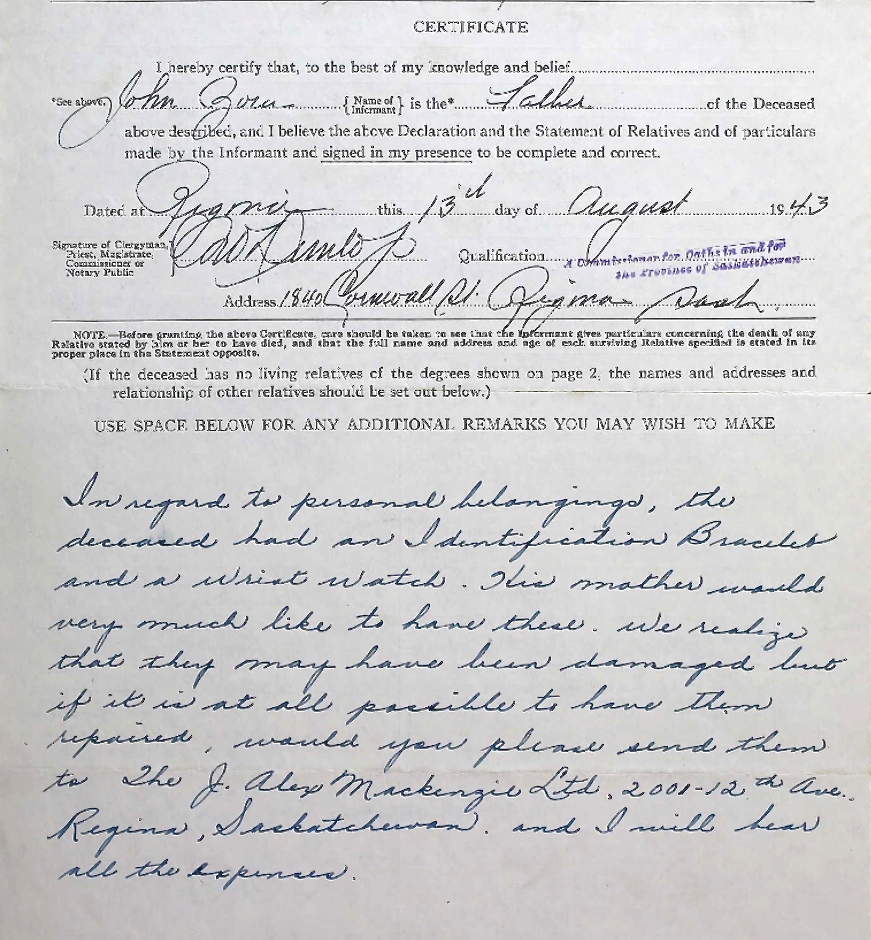 CERTIFICATE
I hereby certify that, to the best of my knowledge and belief
*See above. John { Name of Informant } is the* Father of the Deceased
above described, and I believe the above Declaration and the Statement of Relatives and of particulars
made by the Informant and signed in my presence to be complete and correct.
Dated at Regina this 13th day of August 1943
Signature of Clergyman,
Priest, Magistrate,
Commissioner or
Notary Public
Qualification A Commissioner for Oaths in and for
the Province of Saskatchewan
Address 1840 Cornwall St. Regina Sask.
NOTE.—Before granting the above Certificate, care should be taken to see that the Informant gives particulars concerning the death of any
Relative stated by him or her to have died, and that the full name and address and age of each surviving Relative specified is stated in its
proper place in the Statement opposite.
(If the deceased has no living relatives of the degrees shown on page 2, the names and addresses and
relationship of other relatives should be set out below.)
USE SPACE BELOW FOR ANY ADDITIONAL REMARKS YOU MAY WISH TO MAKE
In regard to personal belongings, the
deceased had an Identification Bracelet
and a Wrist Watch. His mother would
very much like to have these. We realize
that they may have been damaged but
if it is at all possible to have them
repaired, would you please send them
to The J. Alex Mackenzie Ltd, 2001-12th Ave.
Regina, Saskatchewan. and I will bear
all the expenses.